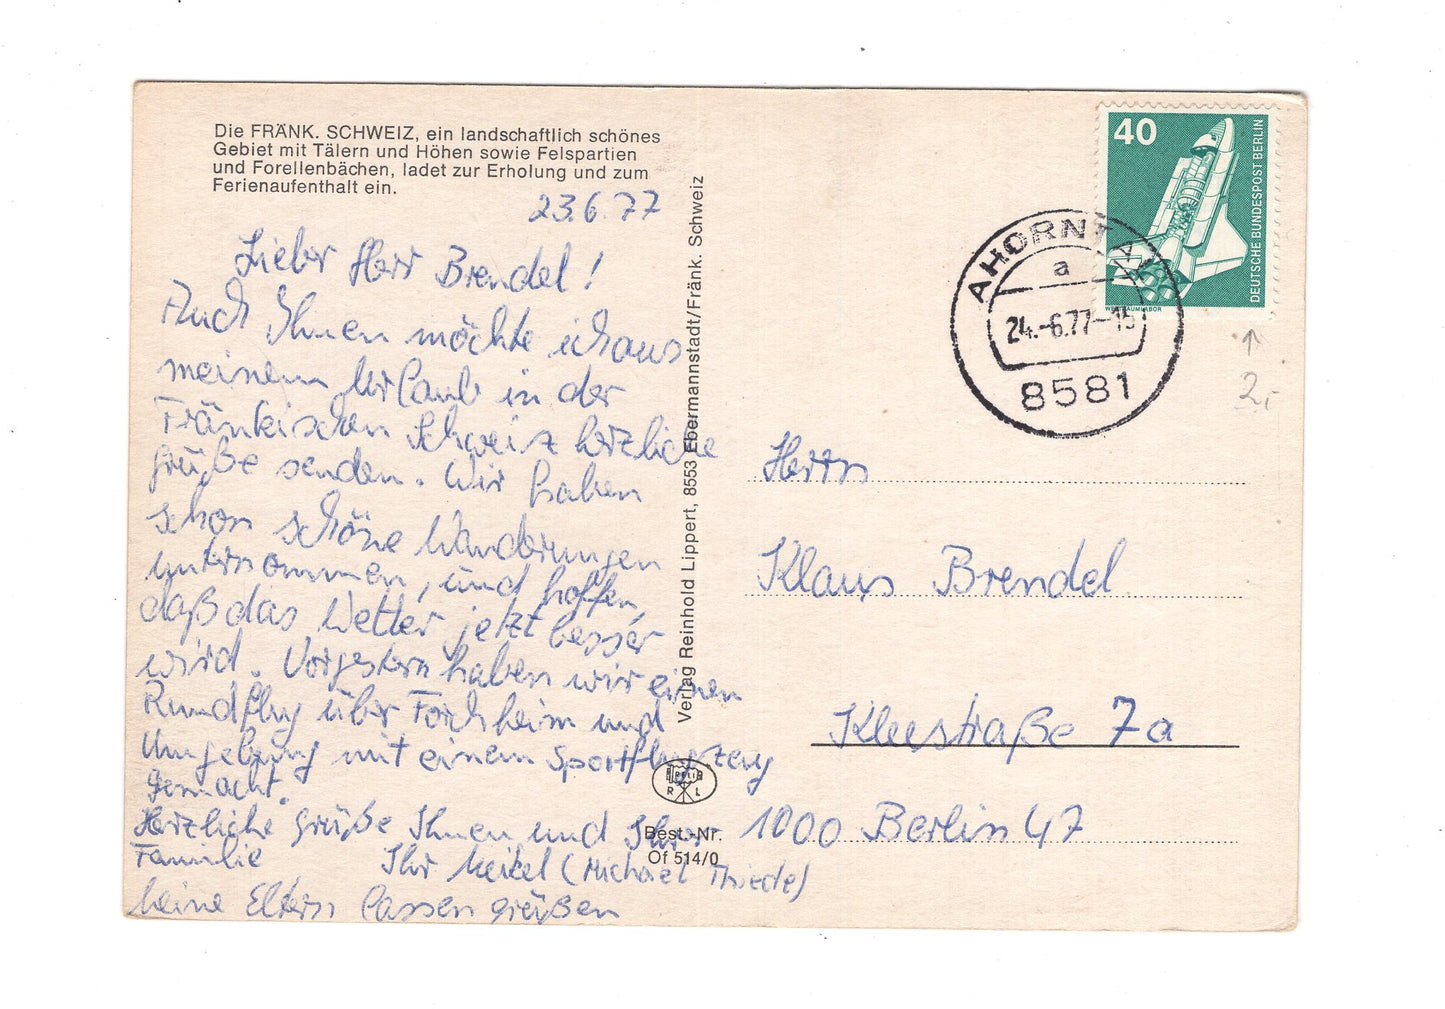 Die FRÄNK. SCHWEIZ, ein landschaftlich schönes
Gebiet mit Tälern und Höhen sowie Felspartien
und Forellenbächen, ladet zur Erholung und zum
Ferienaufenthalt ein.
23.6.77
Lieber Herr Brendel!
Auch Ihnen möchte ich aus
meinem Urlaub in der
Fränkischen Schweiz herzliche
Grüße senden. Wir haben
schon schöne Wanderungen
unternommen, und hoffen,
daß das Wetter jetzt besser
wird. Vorgestern haben wir einen
Rundflug über Forchheim und
Umgebung mit einem Sportflugzeug
gemacht.
Herzliche Grüße Ihnen und Ihrer
Familie Ihr Meikel (Michael Thiede)
Meine Eltern lassen grüßen
Verlag Reinhold Lippert, 8553 Ebermannstadt/Fränk. Schweiz
R L
Best.-Nr.
Of 514/0
40
DEUTSCHE BUNDESPOST BERLIN
WELTRAUMLABOR
AHORNTAL
a
24.-6.77-15
8581
2,-
Herrn
Klaus Brendel
Kleestraße 7a
1000 Berlin 47